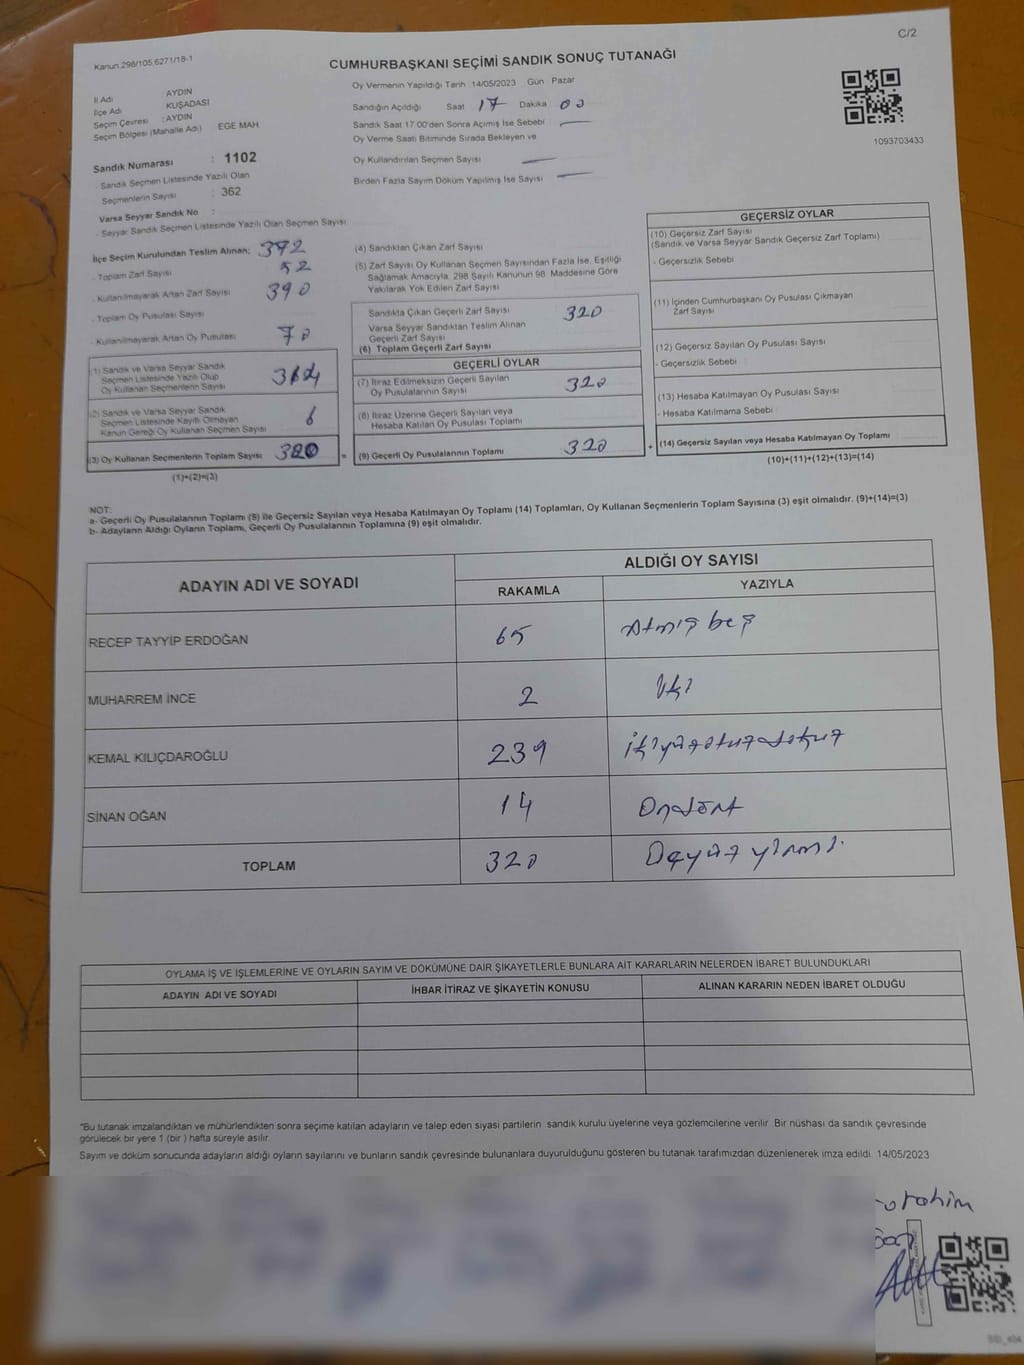 C/2
Kanun 298/105,6271/18-1
CUMHURBAŞKANI SEÇİMİ SANDIK SONUÇ TUTANAĞI
İl Adı AYDIN
İlçe Adı KUŞADASI
Seçim Çevresi : AYDIN
Seçim Bölgesi (Mahalle Adı) EGE MAH
Sandık Numarası : 1102
- Sandık Seçmen Listesinde Yazılı Olan
Seçmenlerin Sayısı : 362
Varsa Seyyar Sandık No :
- Seyyar Sandık Seçmen Listesinde Yazılı Olan Seçmen Sayısı
Oy Vermenin Yapıldığı Tarih 14/05/2023 Gün Pazar
Sandığın Açıldığı Saat 17 Dakika 00
Sandık Saat 17:00'den Sonra Açımış İse Sebebi
Oy Verme Saati Bitiminde Sırada Bekleyen ve
Oy Kullandırılan Seçmen Sayısı
Birden Fazla Sayım Döküm Yapılmış İse Sayısı
1093703433
İlçe Seçim Kurulundan Teslim Alınan; 372
- Toplam Zarf Sayısı 52
- Kullanılmayarak Artan Zarf Sayısı 390
- Toplam Oy Pusulası Sayısı
- Kullanılmayarak Artan Oy Pusulası 70
(1) Sandık ve Varsa Seyyar Sandık
Seçmen Listesinde Yazılı Olup
Oy Kullanan Seçmenlerin Sayısı
(2) Sandık ve Varsa Seyyar Sandık
Seçmen Listesinde Kayıtlı Olmayan
Kanun Gereği Oy Kullanan Seçmen Sayısı 6
(3) Oy Kullanan Seçmenlerin Toplam Sayısı 320 =
(1)+(2)=(3)
(4) Sandıktan Çıkan Zarf Sayısı
(5) Zarf Sayısı Oy Kullanan Seçmen Sayısından Fazla İse, Eşitliği
Sağlamak Amacıyla, 298 Sayılı Kanunun 98. Maddesine Göre
Yakılarak Yok Edilen Zarf Sayısı
Sandıkta Çıkan Geçerli Zarf Sayısı 320
Varsa Seyyar Sandıktan Teslim Alınan
Geçerli Zarf Sayısı
(6) Toplam Geçerli Zarf Sayısı
GEÇERLİ OYLAR
(7) İtiraz Edilmeksizin Geçerli Sayılan
Oy Pusulalarının Sayısı 320
(8) İtiraz Üzerine Geçerli Sayılan veya
Hesaba Katılan Oy Pusulası Toplamı
(9) Geçerli Oy Pusulalarının Toplamı 320 +
GEÇERSİZ OYLAR
(10) Geçersiz Zarf Sayısı
(Sandık ve Varsa Seyyar Sandık Geçersiz Zarf Toplamı)
- Geçersizlik Sebebi
(11) İçinden Cumhurbaşkanı Oy Pusulası Çıkmayan
Zarf Sayısı
(12) Geçersiz Sayılan Oy Pusulası Sayısı
- Geçersizlik Sebebi
(13) Hesaba Katılmayan Oy Pusulası Sayısı
- Hesaba Katılmama Sebebi
(14) Geçersiz Sayılan veya Hesaba Katılmayan Oy Toplamı
(10)+(11)+(12)+(13)=(14)
NOT:
a- Geçerli Oy Pusulalarının Toplamı (9) ile Geçersiz Sayılan veya Hesaba Katılmayan Oy Toplamı (14) Toplamları, Oy Kullanan Seçmenlerin Toplam Sayısına (3) eşit olmalıdır. (9)+(14)=(3)
b- Adayların Aldığı Oyların Toplamı, Geçerli Oy Pusulalarının Toplamına (9) eşit olmalıdır.
ADAYIN ADI VE SOYADI ALDIĞI OY SAYISI
RAKAMLA YAZIYLA
RECEP TAYYİP ERDOĞAN 65 Atmış beş
MUHARREM İNCE 2 İki
KEMAL KILIÇDAROĞLU 239 ikiyüzotuzdokuz
SİNAN OĞAN 14 Ondört
TOPLAM 320 Üçyüz yirmi
OYLAMA İŞ VE İŞLEMLERİNE VE OYLARIN SAYIM VE DÖKÜMÜNE DAİR ŞİKAYETLERLE BUNLARA AİT KARARLARIN NELERDEN İBARET BULUNDUKLARI
ADAYIN ADI VE SOYADI İHBAR İTİRAZ VE ŞİKAYETİN KONUSU ALINAN KARARIN NEDEN İBARET OLDUĞU
*Bu tutanak imzalandıktan ve mühürlendikten sonra seçime katılan adayların ve talep eden siyasi partilerin sandık kurulu üyelerine veya gözlemcilerine verilir. Bir nüshası da sandık çevresinde
görülecek bir yere 1 (bir ) hafta süreyle asılır.
Sayım ve döküm sonucunda adayların aldığı oyların sayılarını ve bunların sandık çevresinde bulunanlara duyurulduğunu gösteren bu tutanak tarafımızdan düzenlenerek imza edildi. 14/05/2023